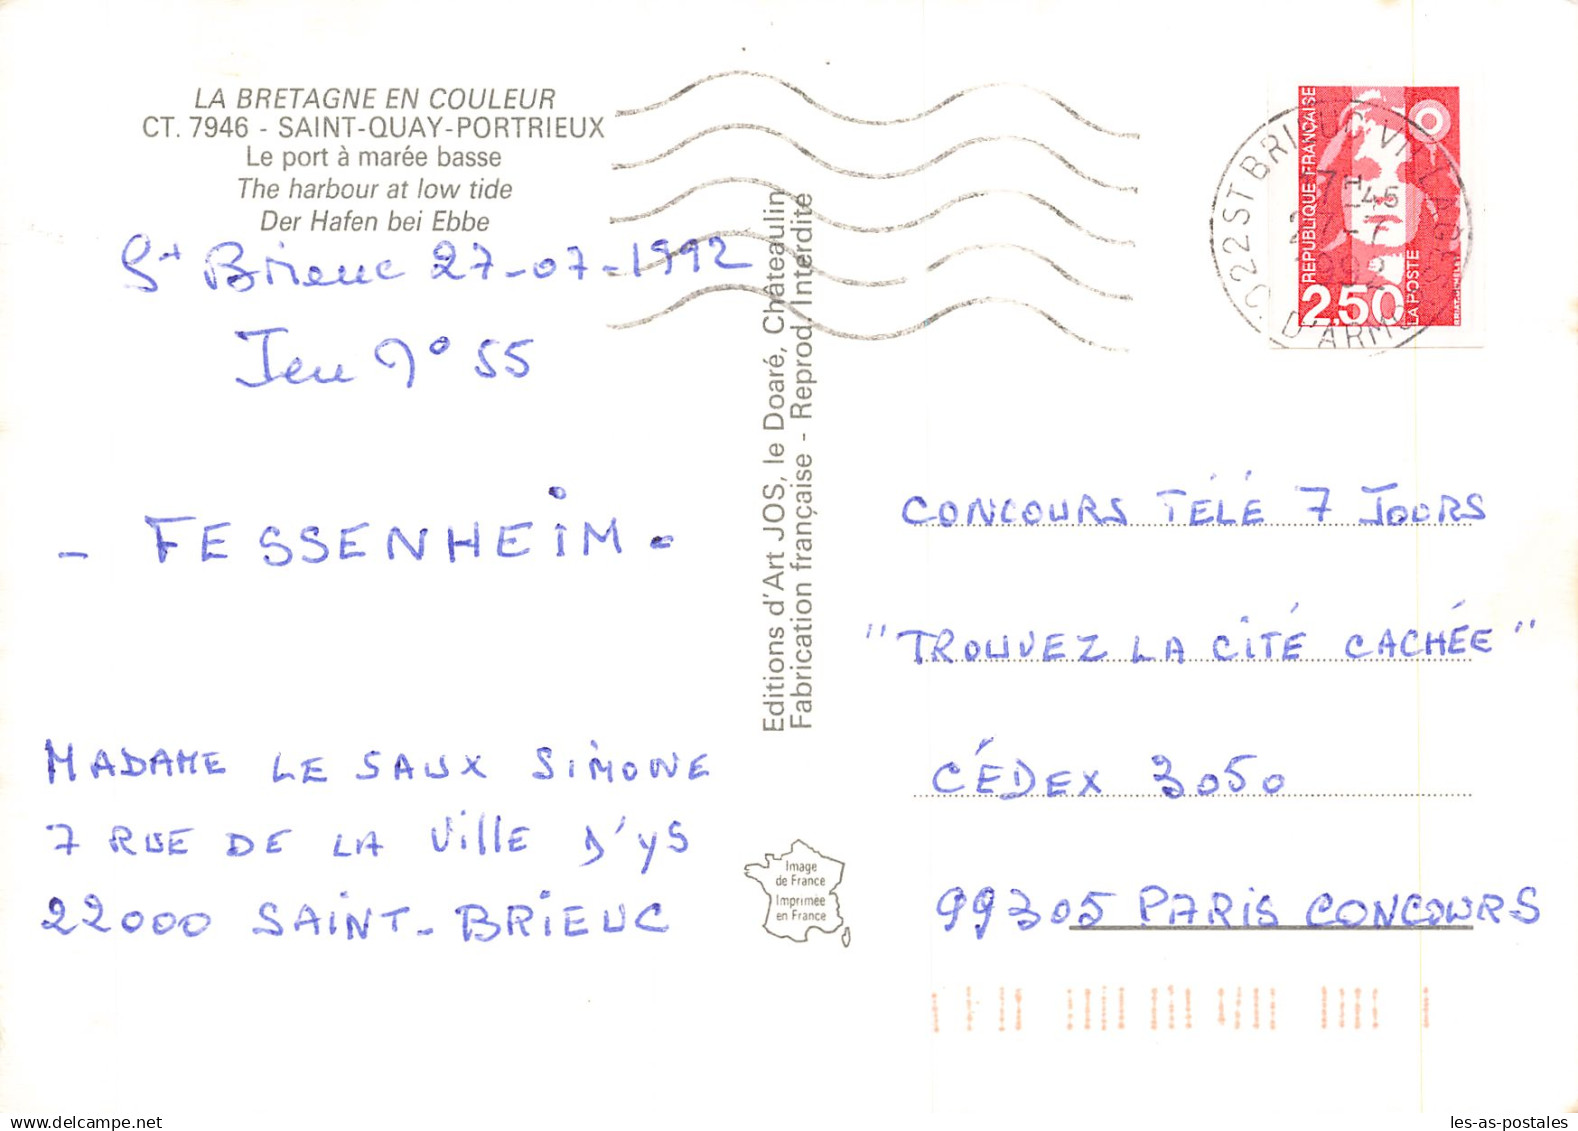 LA BRETAGNE EN COULEUR
CT. 7946 - SAINT-QUAY-PORTRIEUX
Le port à marée basse
The harbour at low tide
Der Hafen bei Ebbe
St Brieuc 27-07-1992
Jeu N° 55
- FESSENHEIM -
MADAME LE SAUX SIMONE
7 RUE DE LA VILLE D'YS
22000 SAINT-BRIEUC
Editions d'Art JOS, le Doaré, Châteaulin
Fabrication française - Reprod. Interdite
Image
de France
Imprimée
en France
REPUBLIQUE FRANÇAISE
2,50
LA POSTE
22 ST BRIEUC
D'ARMOR
17H45
27-7
1992
CONCOURS TÉLÉ 7 JOURS
"TROUVEZ LA CITÉ CACHÉE"
CÉDEX 3050
99305 PARIS CONCOURS
delcampe.net
les-as-postales